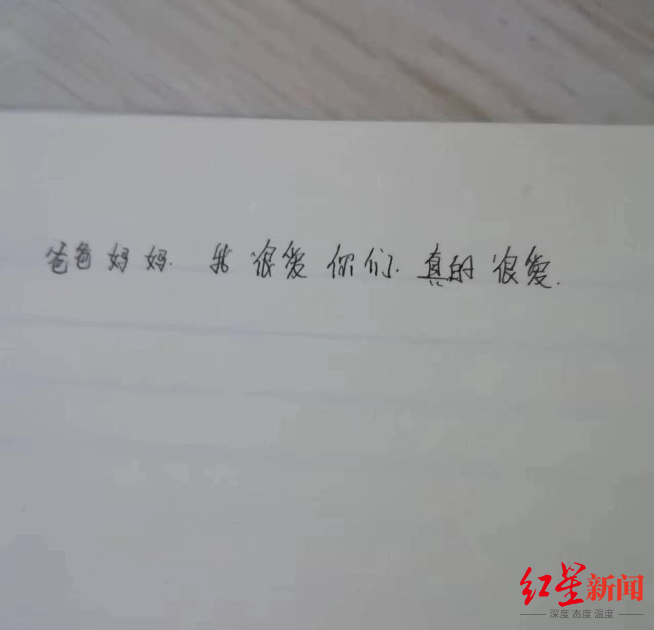 爸爸妈妈.我很爱你们.真的很爱.
红星新闻
深度 态度 温度